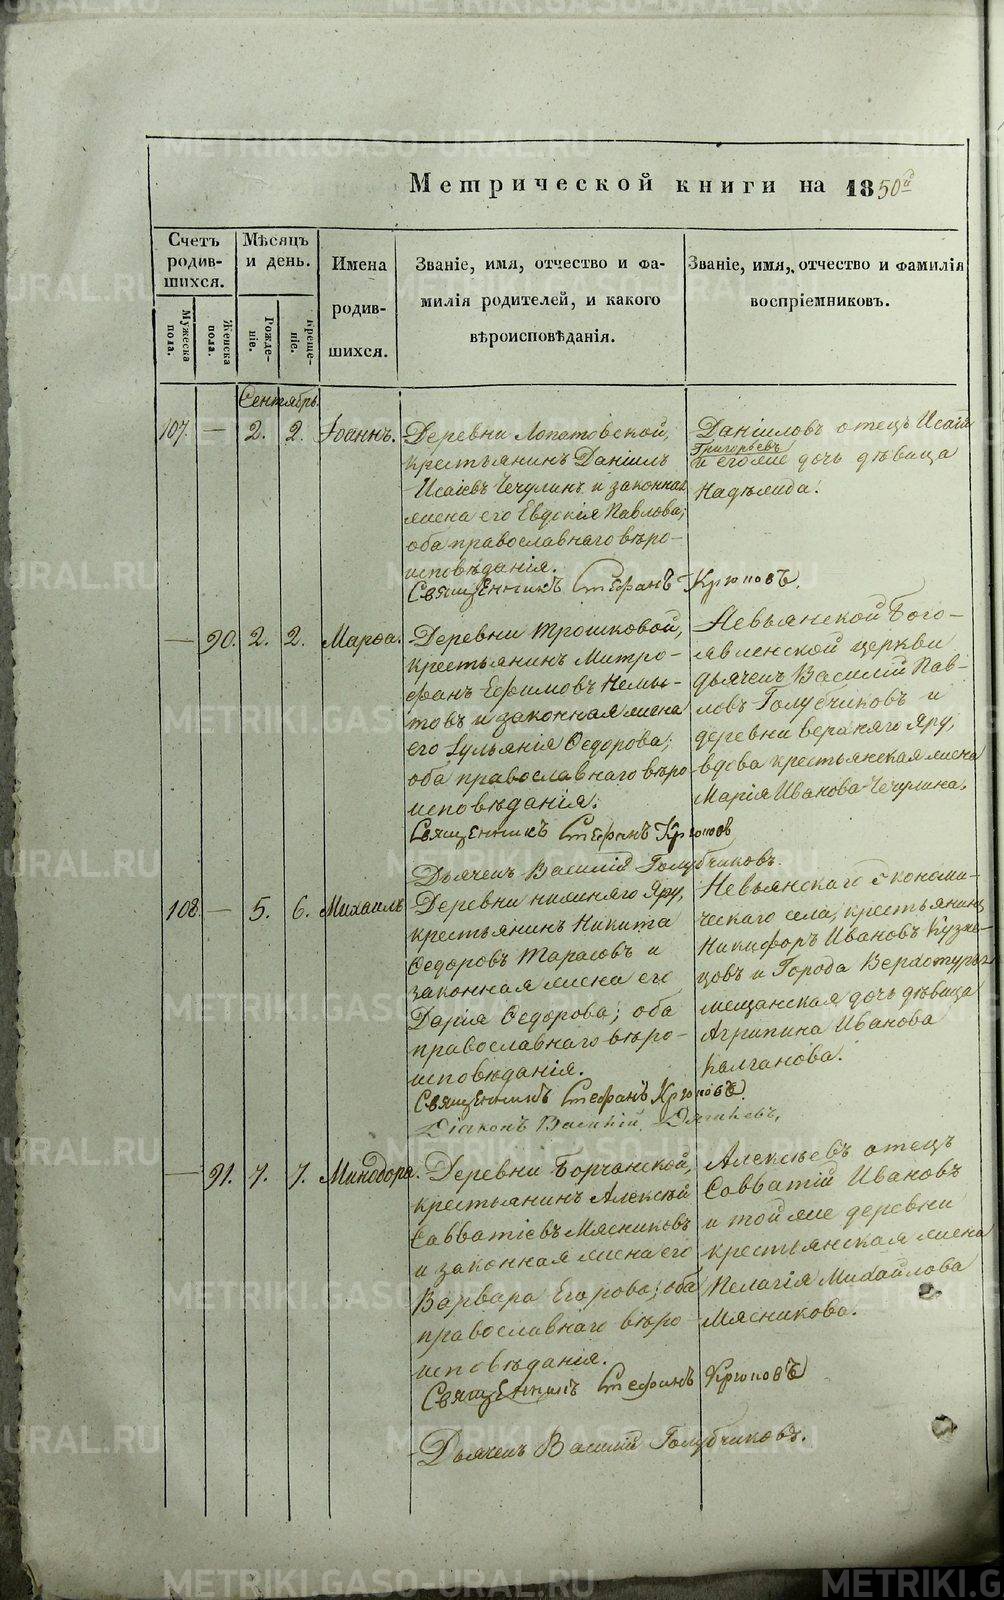 Метрической книги на 1850й
Счетъ родившихся.
Мужеска пола.
Женска пола.
Мѣсяцъ и день.
Рожденіе.
Крещеніе.
Имена родившихся.
Званіе, имя, отчество и фамилія родителей, и какого вѣроисповѣданія.
Званіе, имя, отчество и фамилія воспріемниковъ.
Сентябрь.
107. — 2. 2. Іоаннъ.
Деревни Лопатовской,
крестьянинъ Даніилъ
Исаіевъ Чечулинъ и законная
жена его Евдокія Павлова;
оба православнаго вѣро-
исповѣданія.
Даніиловъ отецъ Исаія
Григорьевъ
и его же дочь дѣвица
Надежда.
Священникъ Стефанъ Крюковъ.
— 90. 2. 2. Марѳа.
Деревни Трошковой,
крестьянинъ Митро-
фанъ Ефимовъ Немы-
товъ и законная жена
его Іульянія Ѳедорова;
оба православнаго вѣро
исповѣданія.
Невьянской Бого-
явленской церкви
дьячекъ Василій Пав-
ловъ Голубчиковъ и
деревни верхняго Яру,
вдова крестьянская жена
Марія Иванова Чечулина.
Священникъ Стефанъ Крюковъ
Дьячекъ Василій Голубчиковъ.
108. — 5. 6. Михаилъ
Деревни нижняго Яру,
крестьянинъ Никита
Ѳедоровъ Тарасовъ и
законная жена его
Дарія Ѳедорова; оба
православнаго вѣро-
исповѣданія.
Невьянскаго экономи-
ческаго села, крестьянинъ
Никифоръ Ивановъ Кузне-
цовъ и Города Верхотурья
мещанская дочь дѣвица
Агрипина Иванова
Калганова.
Священникъ Стефанъ Крюковъ.
Діаконъ Василій
— 91. 7. 7. Минодора.
Деревни Борчанской,
крестьянинъ Алексѣй
Савватіевъ Мясниковъ
и законная жена его
Варвара Егорова; оба
православнаго вѣро-
исповѣданія.
Алексѣевъ отецъ
Савватій Ивановъ
и той же деревни
крестьянская жена
Пелагія Михайлова
Мясникова.
Священникъ Стефанъ Крюковъ
Дьячекъ Василій Голубчиковъ.
METRIKI.GASO-URAL.RU